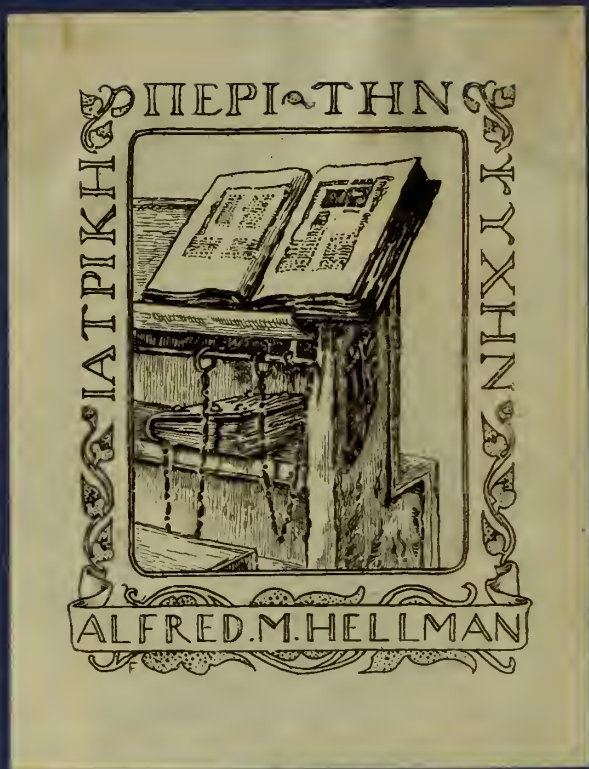 ΙΑΤΡΙΚΗ
ΠΕΡΙ~ΤΗΝ
ΨΥΧΗΝ
ALFRED.M.HELLMAN
F